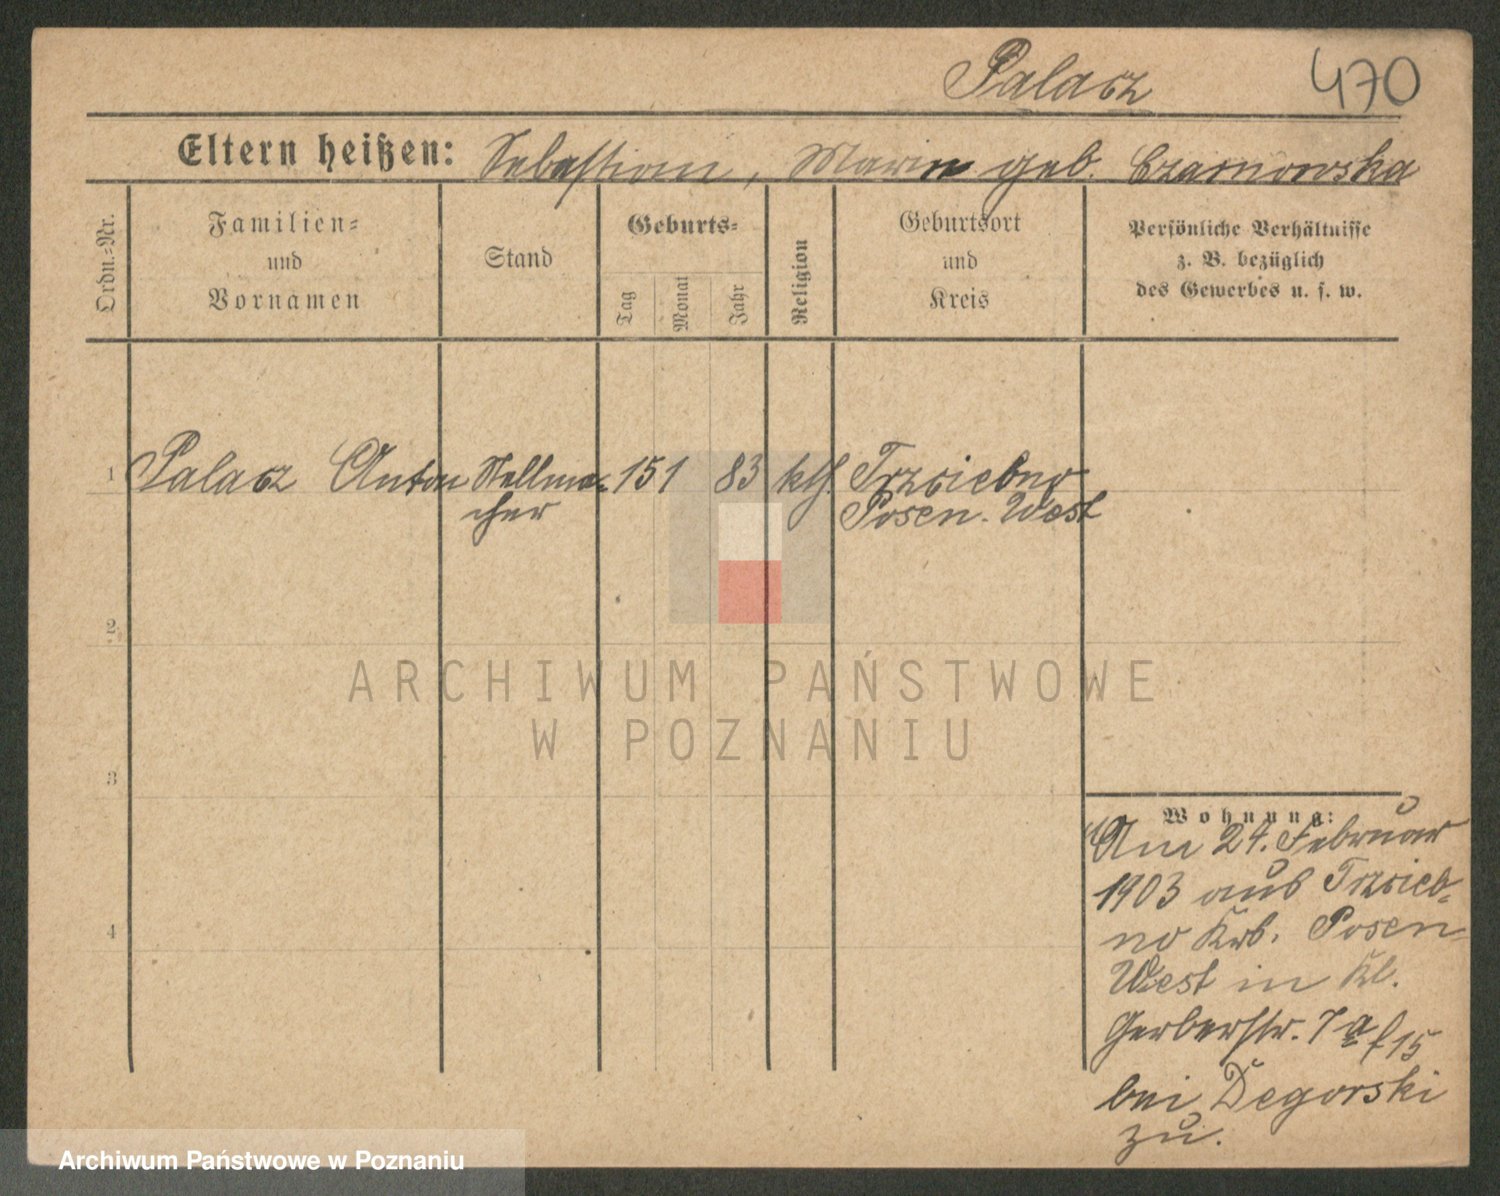 Palacz 470
Eltern heißen: Sebastian, Marie geb. Czarnowska
Ordn.-Nr.
Familien-
und
Vornamen
Stand
Geburts-
Tag
Monat
Jahr
Religion
Geburtsort
und
Kreis
Persönliche Verhältnisse
z. B. bezüglich
des Gewerbes u. s. w.
1 Palacz Anton Stellma- 15 1 83 kth. Trzciebno
cher Posen-West
2
ARCHIWUM PAŃSTWOWE
W POZNANIU
3
Wohnung:
Am 24. Februar
1903 aus Trzcieb-
4
no Krs. Posen-
West in Kl.
Gerberstr. 7a
f 15
bei Degorski
zu.
Archiwum Państwowe w Poznaniu